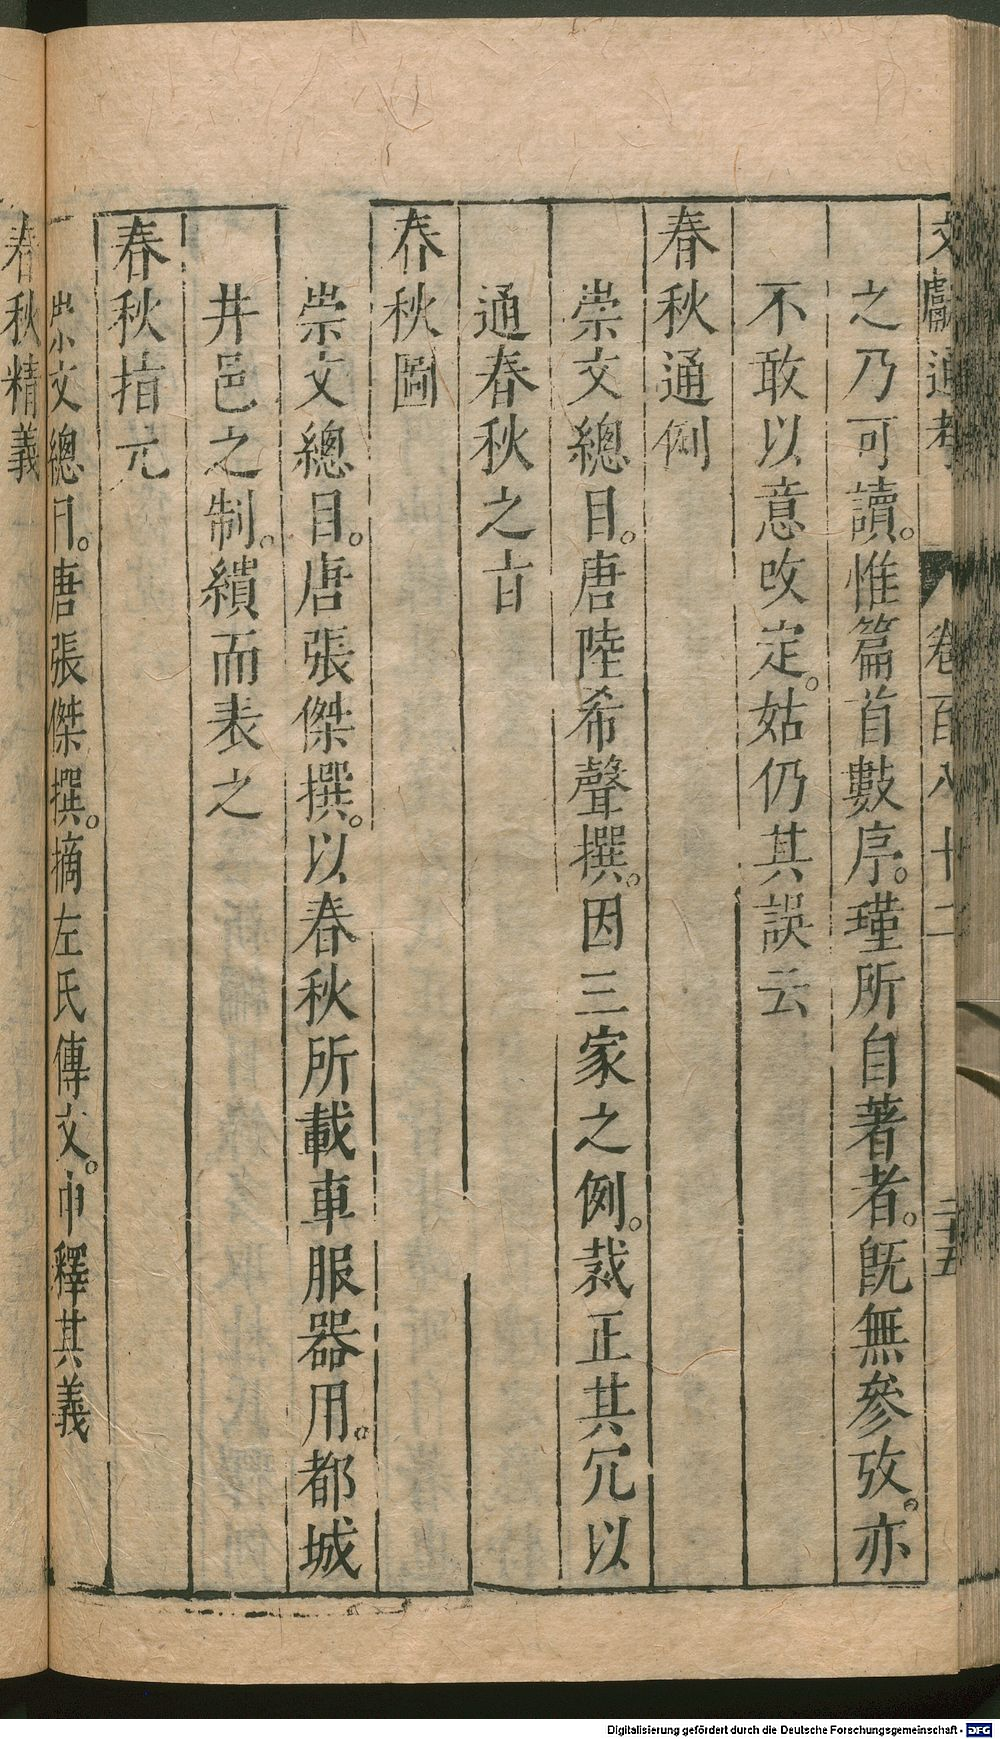 文獻通考 卷百八十二 二十五
之乃可讀。惟篇首數序。瑾所自著者。旣無參攷。亦
不敢以意改定。姑仍其誤云
春秋通例
崇文總目。唐陸希聲撰。因三家之例。裁正其冗以
通春秋之旨
春秋圖
崇文總目。唐張傑撰。以春秋所載車服器用。都城
井邑之制。繢而表之
春秋指元
崇文總目。唐張傑撰。摘左氏傳文。巾釋其義
春秋精義
Digitalisierung gefördert durch die Deutsche Forschungsgemeinschaft - DFG